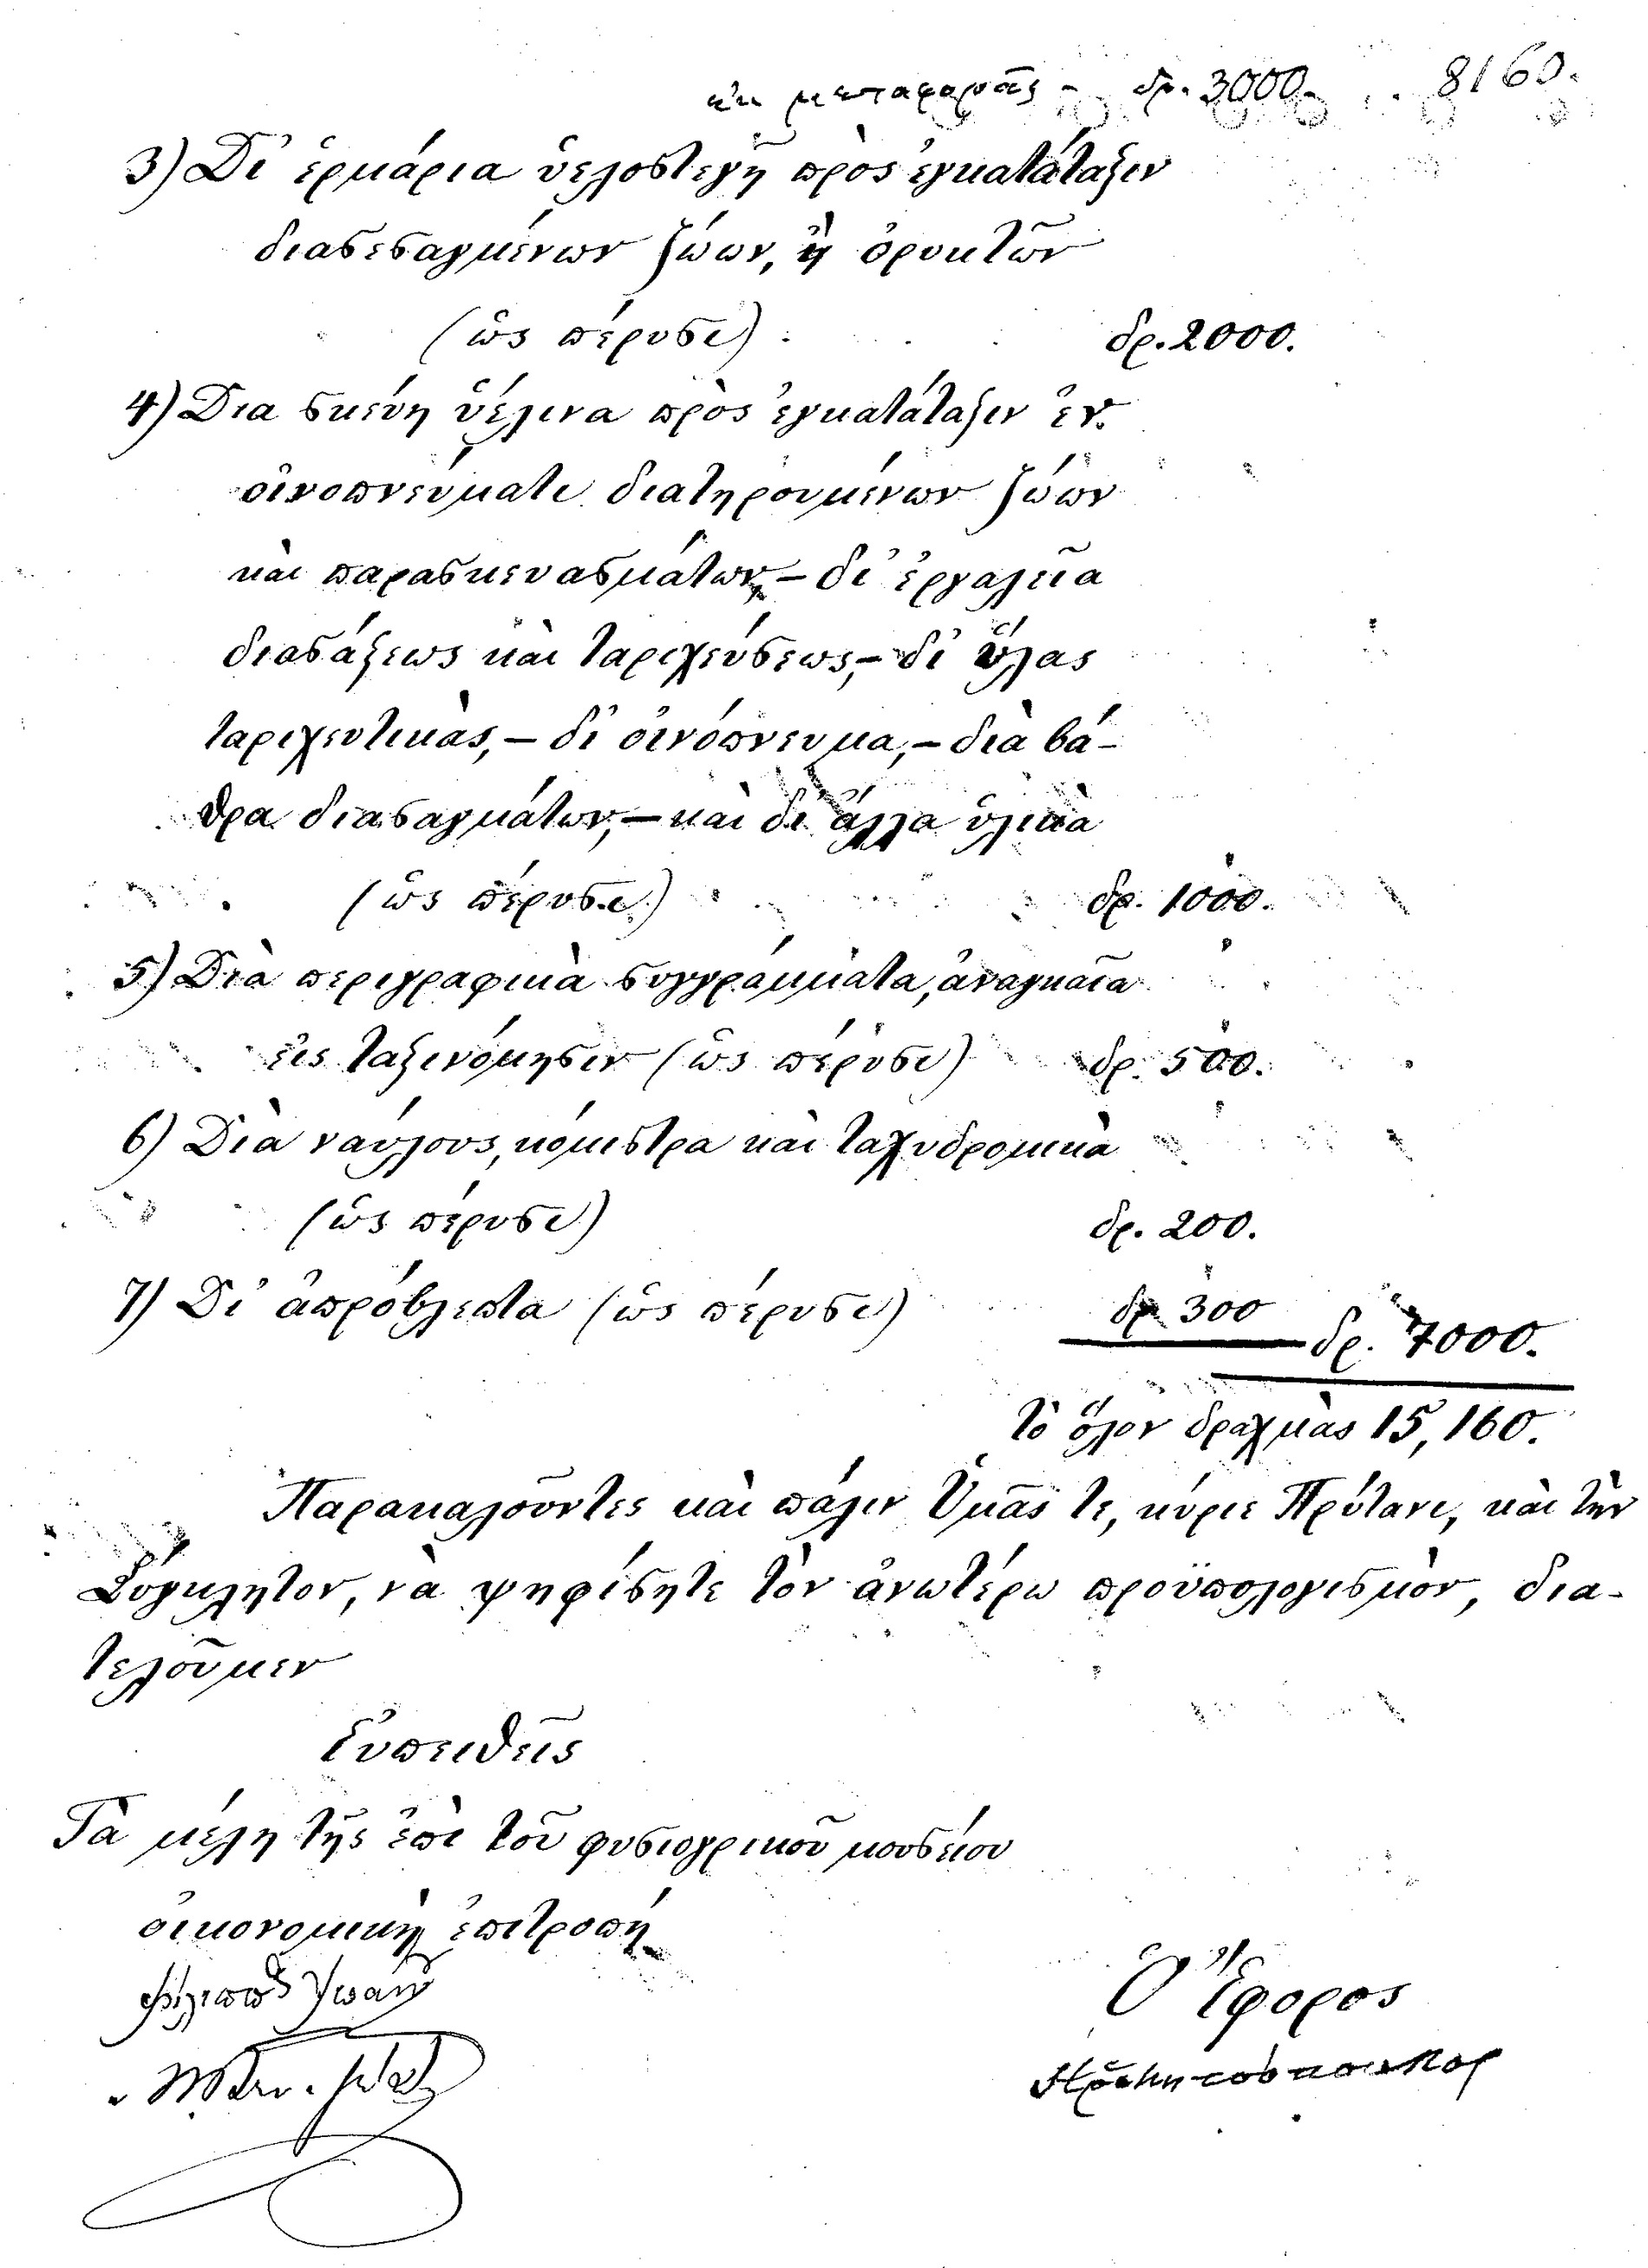 ἐκ μεταφορᾶς - δρ. 3000. . . 8160.
3) Δι' ἑρμάρια ὑελοστεγῆ πρὸς ἐγκατάταξιν
διασεσαγμένων ζώων, ἢ ὀρυκτῶν
(ὡς πέρυσι) . . . δρ. 2000.
4) Δια σκεύη ὑέλινα πρὸς ἐγκατάταξιν ἐν
οἰνοπνεύματι διατηρουμένων ζώων
καὶ παρασκευασμάτων, – δι' ἐργαλεῖα
διασάξεως καὶ ταριχεύσεως, – δι' ὕλας
ταριχευτικὰς, – δι' οἰνόπνευμα, – διὰ βά-
θρα διασαγμάτων, – καὶ δι' ἄλλα ὑλικὰ
(ὡς πέρυσι) δρ. 1000.
5) Διὰ περιγραφικὰ συγγράμματα, ἀναγκαῖα
εἰς ταξινόμησιν (ὡς πέρυσι) δρ. 500.
6) Διὰ ναύλους, κόμιστρα καὶ ταχυδρομικὰ
(ὡς πέρυσι) δρ. 200.
7) Δι' ἀπρόβλεπτα (ὡς πέρυσι) δρ 300 δρ. 7000.
τὸ ὅλον δραχμὰς 15,160.
Παρακαλοῦντες καὶ πάλιν Ὑμᾶς τε, κύριε Πρύτανι, καὶ τὴν
Σύγκλητον, νὰ ψηφίσητε τὸν ἀνωτέρω προϋπολογισμὸν, δια-
τελοῦμεν
Εὐπειθεῖς
Τὰ μέλη τῆς ἐπὶ τοῦ φυσιογρικοῦ μουσείου
οἰκονομικὴ ἐπιτροπή
Ὁ Ἔφορος